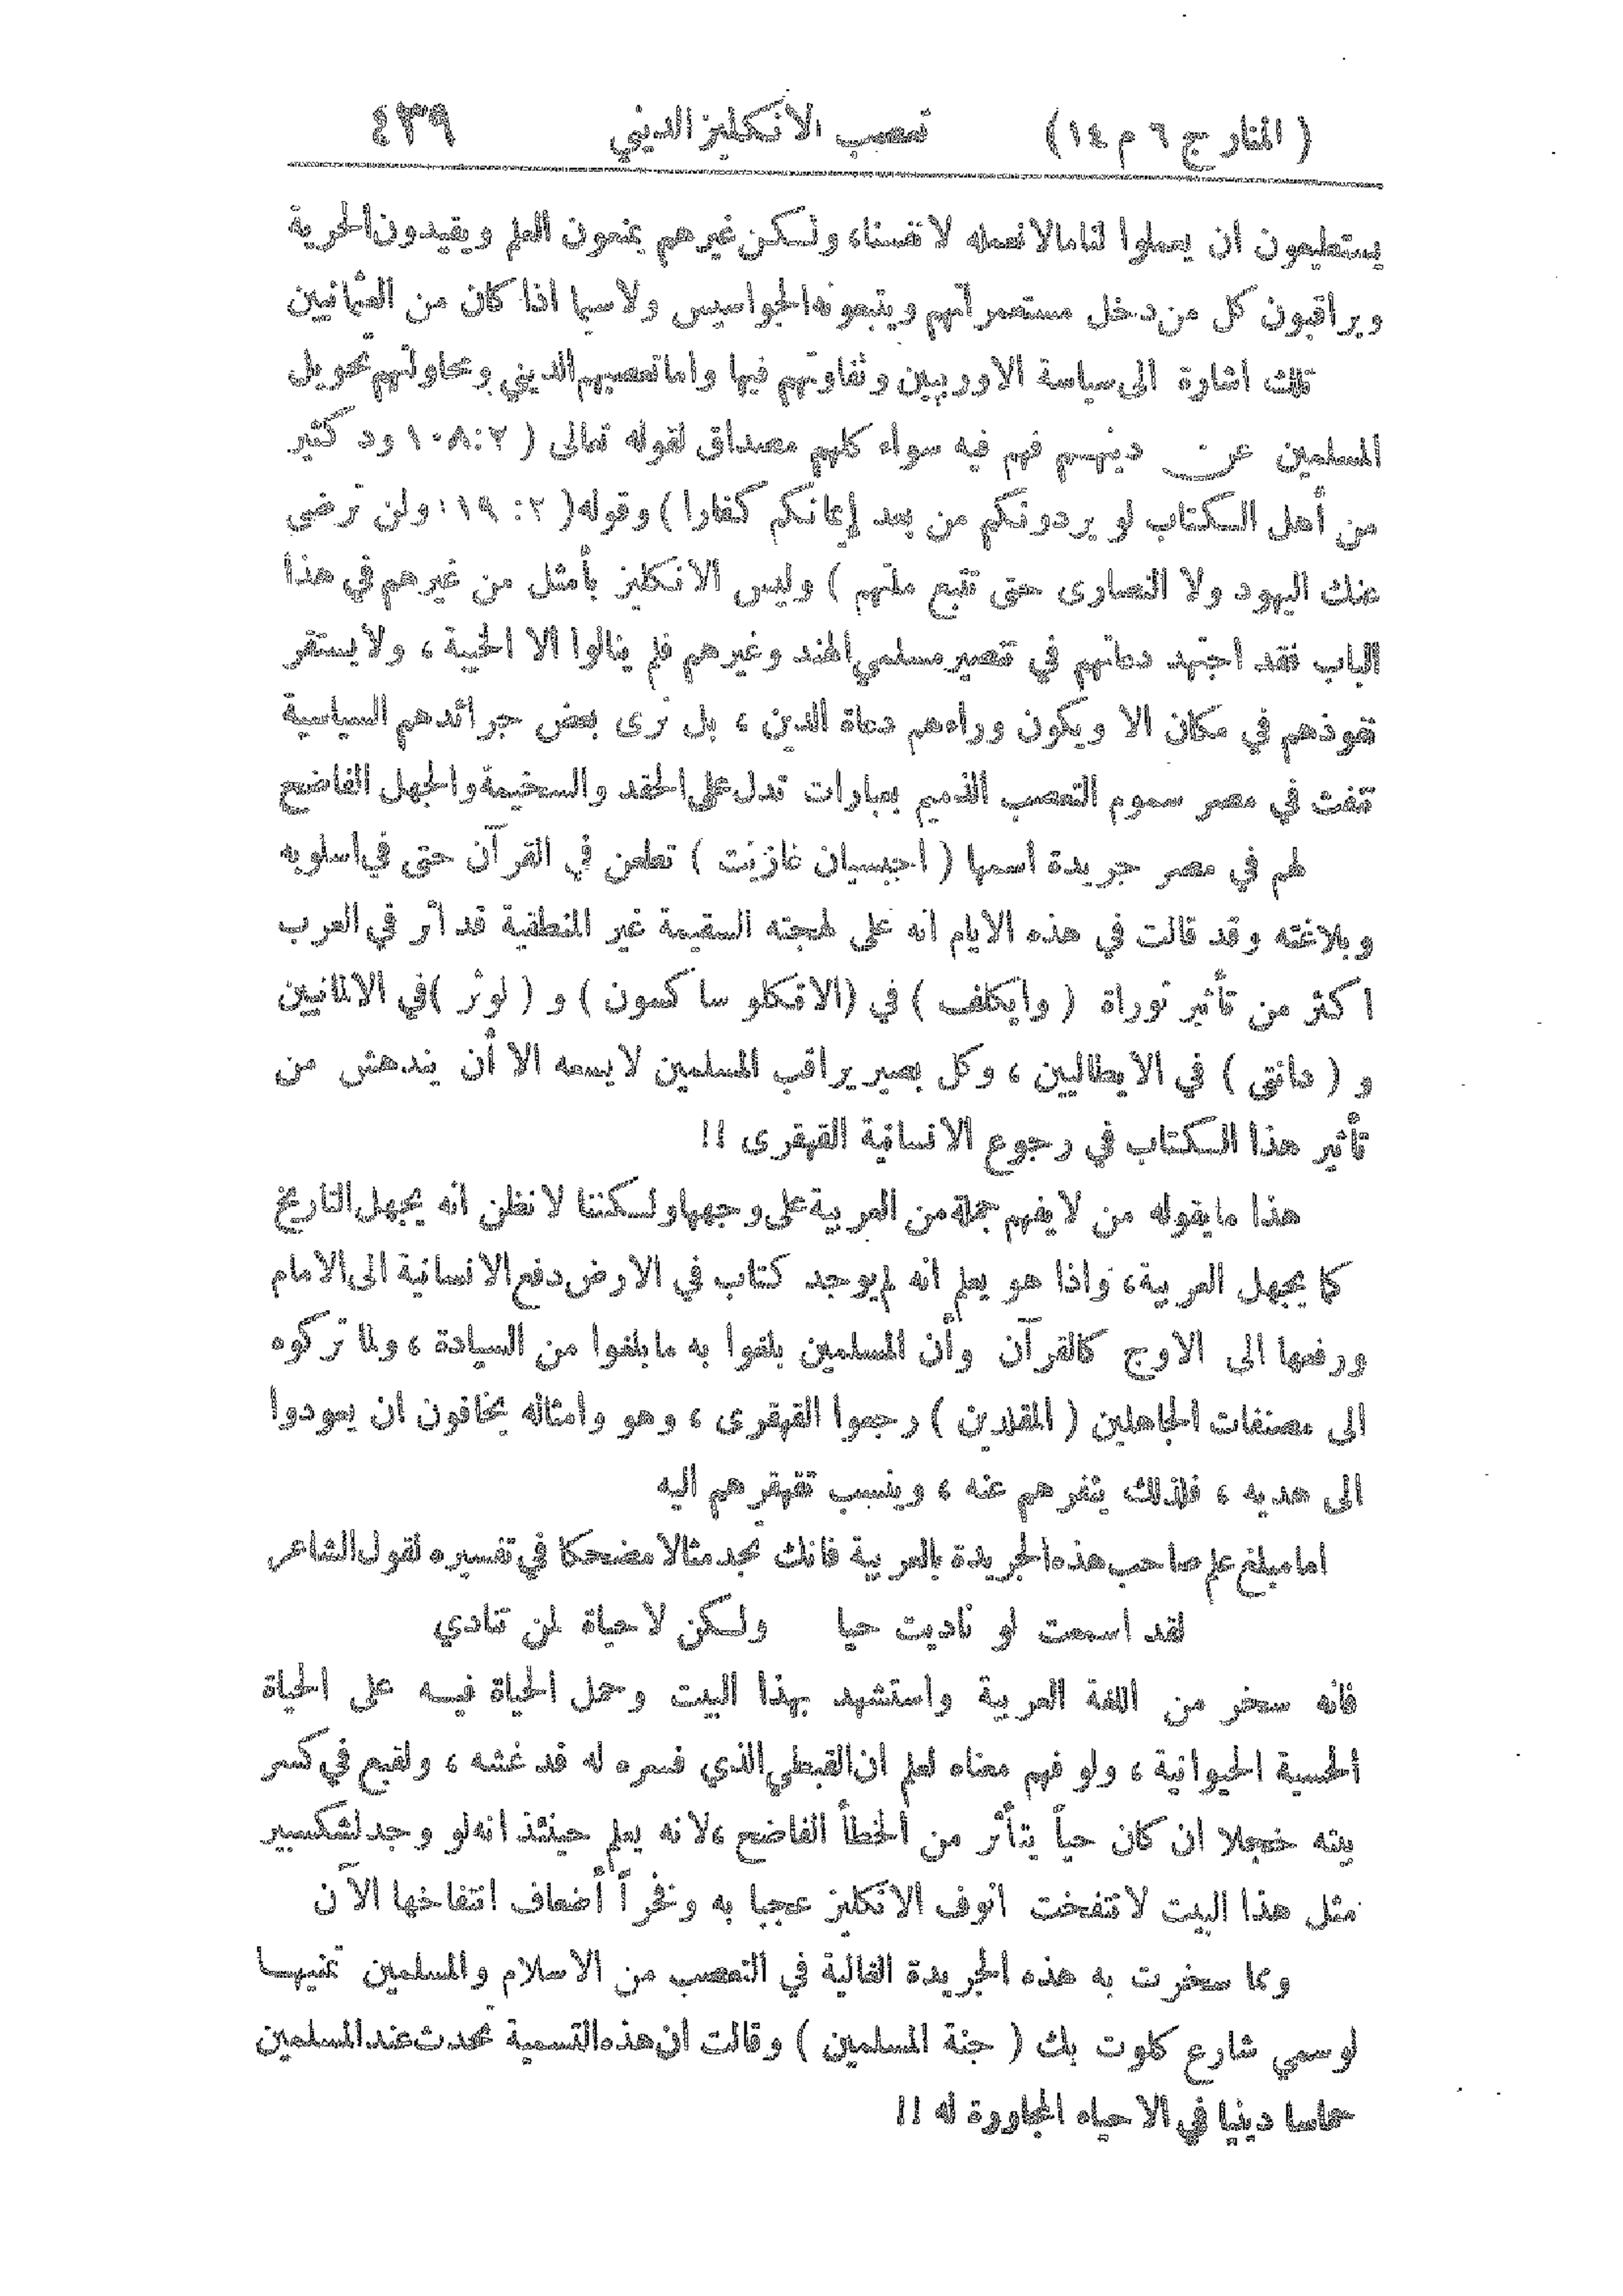 ( المنار ج ٦ م ١٤ ) تعصب الانكليز الديني ٤٣٩
يستطيعون ان يعملوا لنا مالا نعمله لا نفسنا، ولكن غيرهم يمنعون العلم ويقيدون الحرية
ويراقبون كل من دخل مستعمراتهم ويتبعونه الجواسيس ولاسيما اذا كان من العثمانيين
تلك اشارة الى سياسة الاوربيين وتفاوتهم فيها واما تعصبهم الديني ومحاولتهم تحويل
المسلمين عن دينهم فهم فيه سواء كلهم مصداق لقوله تعالى ( ٢:١٠٨ ود كثير
من أهل الكتاب لو يردونكم من بعد إيمانكم كفارا ) وقوله ( ٢: ١١٩ ولن ترضى
عنك اليهود ولا النصارى حتى تتبع ملتهم ) وليس الانكليز بأمثل من غيرهم في هذا
الباب فقد اجتهد دعاتهم في تنصير مسلمي الهند وغيرهم فلم ينالوا الا الخيبة ، ولا يستقر
نفوذهم في مكان الا ويكون وراءهم دعاة الدين ، بل نرى بعض جرائدهم السياسية
تنفث في مصر سموم التعصب الذميم بعبارات تدل على الحقد والسخيمة والجهل الفاضح
لهم في مصر جريدة اسمها ( اجبسيان غازيت ) تطعن في القرآن حتى في اسلوبه
وبلاغته وقد قالت في هذه الايام انه على لهجته السقيمة غير المنطقية قد أثر في العرب
اكثر من تأثير توراة ( وايكلف ) في (الانكلو سا كسون ) و ( لوثر )في الالمانيين
و ( دانتي ) في الايطاليين ، وكل بصير يراقب المسلمين لا يسعه الا أن يندهش من
تأثير هذا الكتاب في رجوع الانسانية القهقرى !!
هذا ما يقوله من لا يفهم جملة من العربية على وجهها ولكننا لا نظن انه يجهل التاريخ
كما يجهل العربية، واذا هو يعلم انه لم يوجد كتاب في الارض دفع الانسانية الى الامام
ورفعها الى الاوج كالقرآن وأن المسلمين بلغوا به ما بلغوا من السيادة ، ولما تركوه
الى مصنفات الجاهلين ( المقلدين ) رجعوا القهقرى ، وهو وامثاله يخافون ان يعودوا
الى هديه ، فلذلك ينفرهم عنه ، وينسب تقهقرهم اليه
اما مبلغ علم صاحب هذه الجريدة بالعربية فانك تجد مثالا مضحكا في تفسيره لقول الشاعر
لقد اسمعت لو ناديت حيا ولكن لا حياة لمن تنادي
فانه سخر من اللغة العربية واستشهد بهذا البيت وحمل الحياة فيه على الحياة
الحسية الحيوانية ، ولو فهم معناه لعلم ان القبطي الذي فسره له قد غشه ، ولقبع في كسر
بيته خجلا ان كان حياً يتأثر من الخطأ الفاضح ، لانه يعلم حينئذ انه لو وجد لشكسبير
مثل هذا البيت لا نتفخت انوف الانكليز عجبا به وفخراً أضعاف انتفاخها الآن
ومما سخرت به هذه الجريدة الغالية في التعصب من الاسلام والمسلمين تمنيها
لو سمي شارع كلوت بك ( جنة المسلمين ) وقالت ان هذه التسمية تحدث عند المسلمين
حماسا دينيا في الاحياء المجاورة له !!